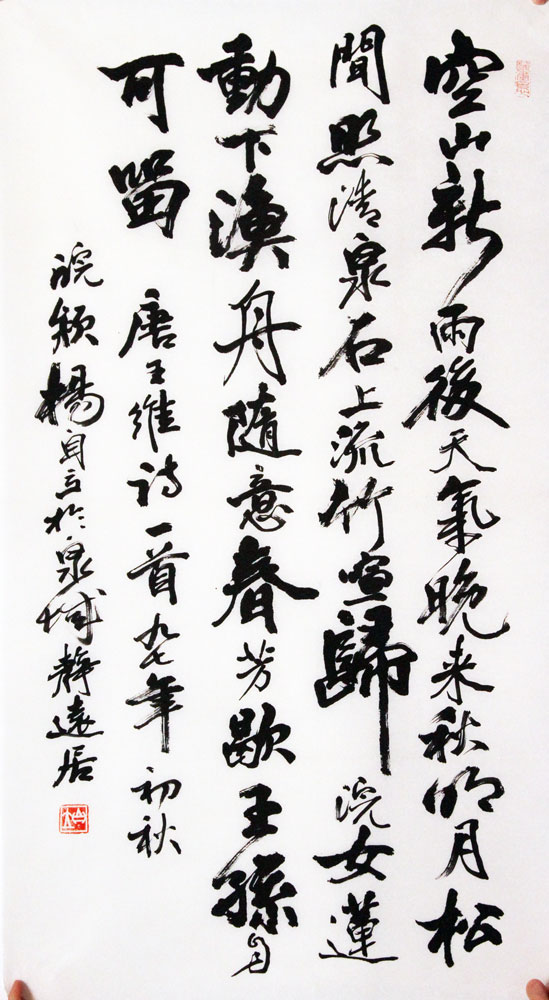 空山新雨後天氣晚来秋明月松
間照清泉石上流竹喧歸浣女蓮
動下漁舟隨意春芳歇王孫自
可留 唐王維诗一首九七年初秋
皖颍楊自立於泉城靜遠居